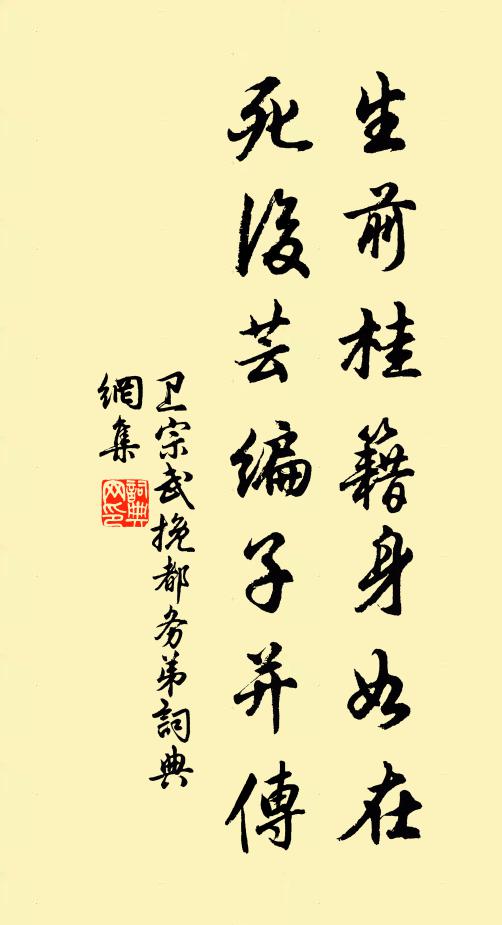 生前桂籍身如在
死後芸編子并傳
卫宗武挽都务弟詞典
網集
詞典网印